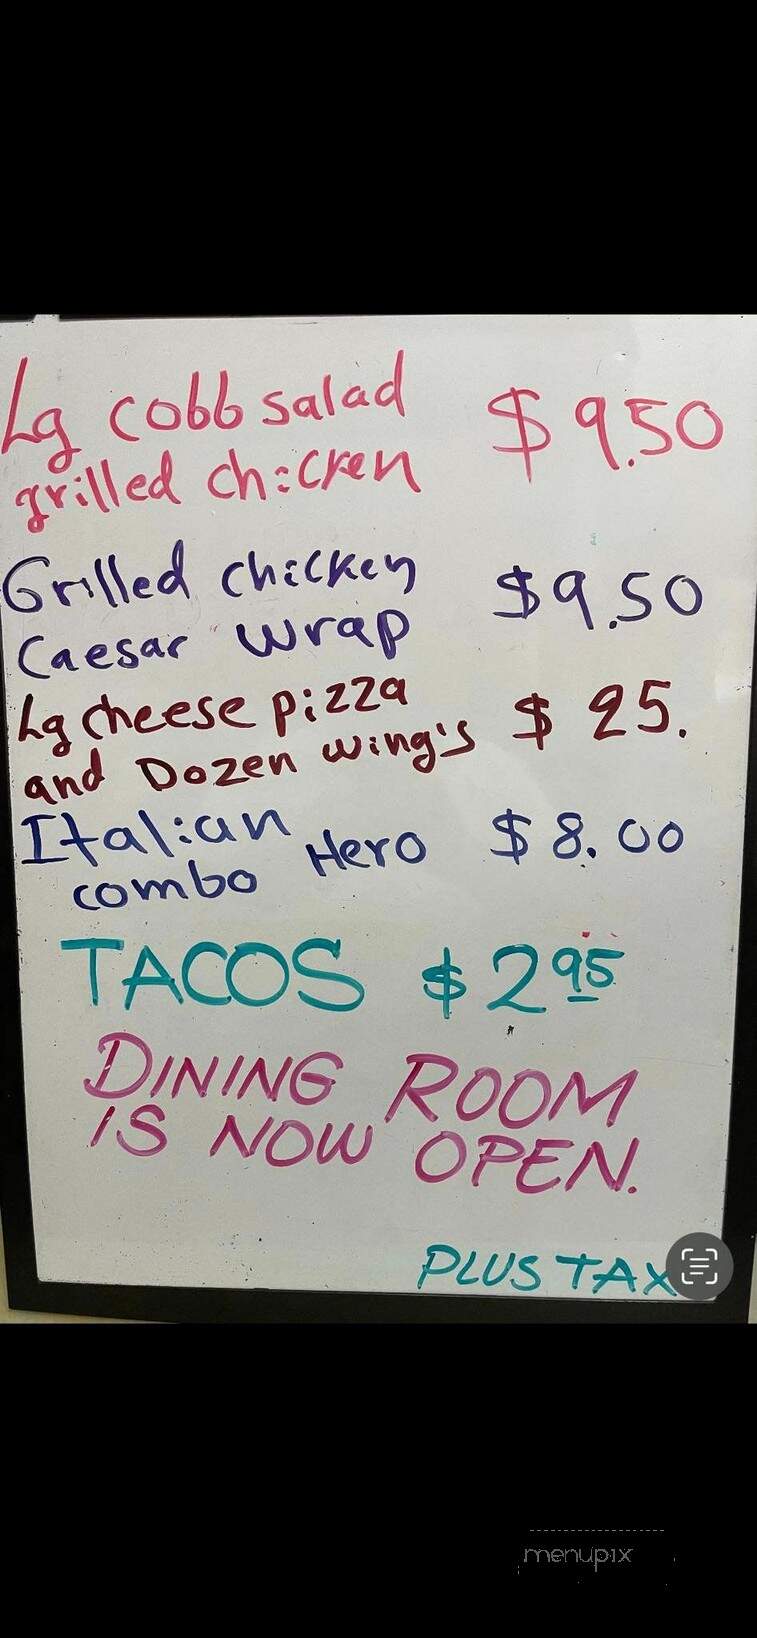 Lg cobb salad $9.50
grilled chicken
Grilled chicken $9.50
Caesar wrap
Lg cheese pizza $25.
and Dozen wing's
Italian Hero $8.00
combo
TACOS $2.95
DINING ROOM
IS NOW OPEN.
PLUS TAX
menupix